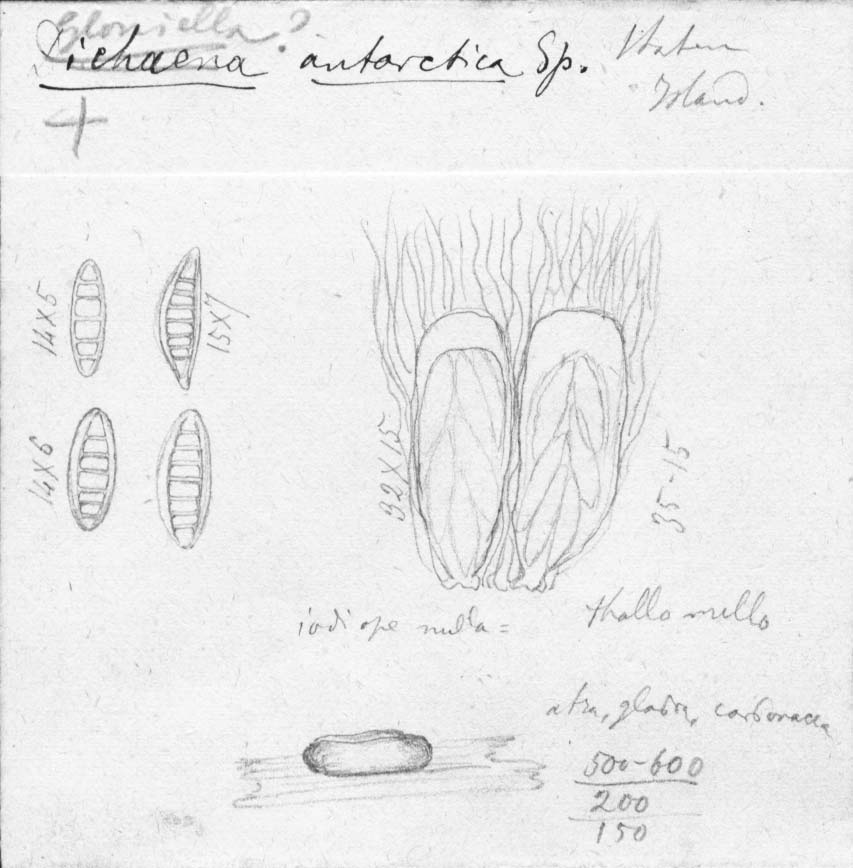 Gloniella?
Dichaena antarctica Sp. Staten
Island.
+
14X5
15X7
14X6
32X15
35-15
iodi ope nulla =
thallo nullo
atra, glabra, carbonacea
500-600
200
150